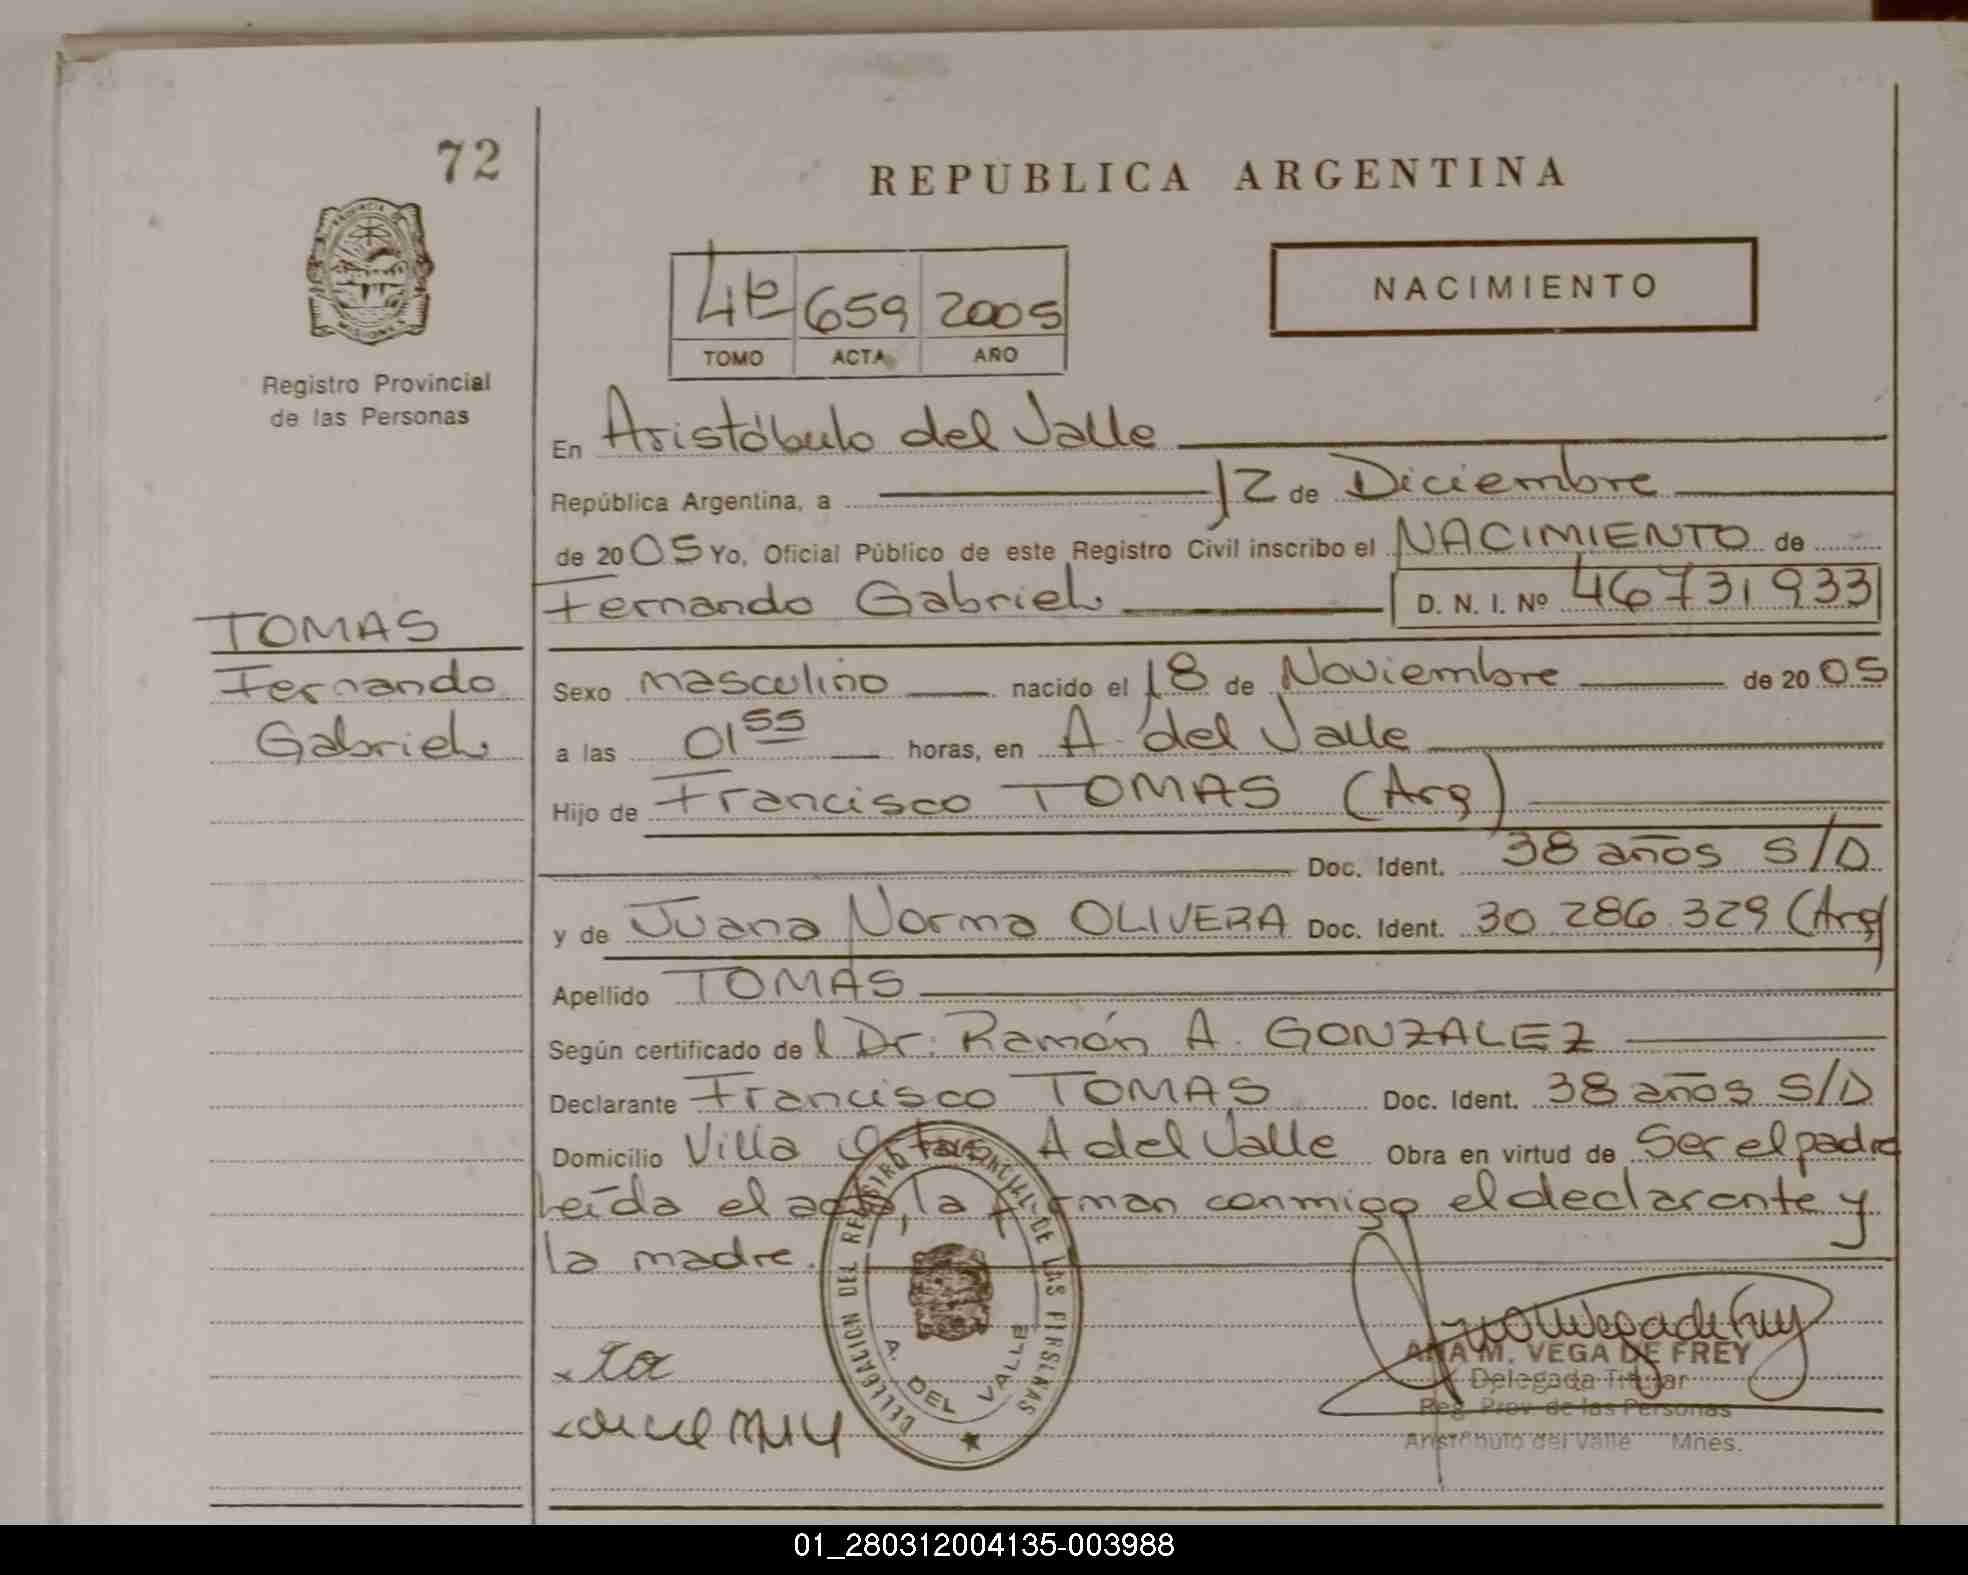 72
REPUBLICA ARGENTINA
NACIMIENTO
4º 659 2005
TOMO ACTA AÑO
Registro Provincial
de las Personas
En Aristóbulo del Valle
República Argentina, a 12 de Diciembre
de 2005 Yo, Oficial Público de este Registro Civil inscribo el NACIMIENTO de
Fernando Gabriel D. N. I. Nº 46731933
TOMAS
Fernando
Gabriel
Sexo masculino nacido el 18 de Noviembre de 2005
a las 01 55 horas, en A. del Valle
Hijo de Francisco TOMAS (Arg)
Doc. Ident. 38 años S/D
y de Juana Norma OLIVERA Doc. Ident. 30.286.329 (Arg)
Apellido TOMAS
Según certificado del Dr. Ramón A. GONZALEZ
Declarante Francisco TOMAS Doc. Ident. 38 años S/D
Domicilio Villa A del Valle Obra en virtud de Ser el padre
Leída el acta, la firman conmigo el declarante y
la madre.
DELEGACION DEL REGISTRO PROVINCIAL DE LAS PERSONAS
A. DEL VALLE
ANA M. VEGA DE FREY
Delegada Titular
Reg. Prov. de las Personas
Aristóbulo del Valle Mnes.
01_280312004135-003988